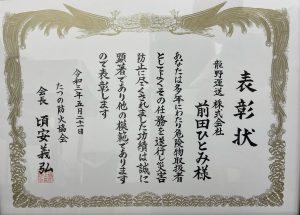 表彰状
龍野運送株式会社
前田ひとみ様
あなたは多年にわたり危険物取扱者
としてよくその任務を遂行し災害
防止に尽くされました功績は誠に
顕著であり他の模範であります
ので表彰します
令和三年五月二十一日
たつの防火協会
会長 頃安義弘